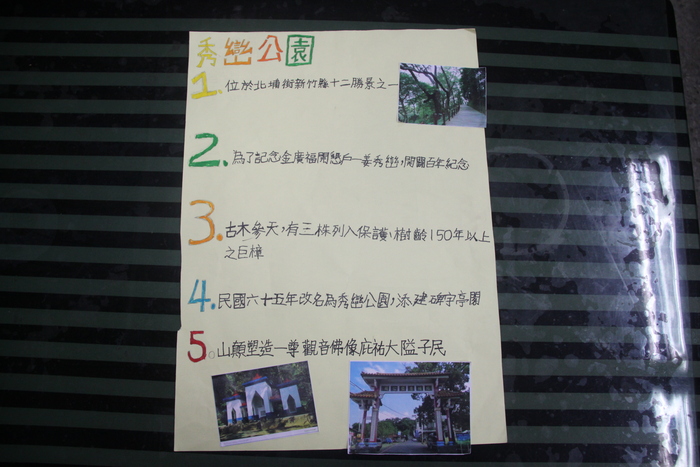 秀巒公園
1. 位於北埔街新竹縣十二勝景之一
2. 為了記念金廣福開懇戶-姜秀巒,開闢百年紀念
3. 古木參天,有三株列入保護、樹齡150年以上
之巨樟
4. 民國六十五年改名為秀巒公園,添建碑宇亭閣
5. 山顛塑造一尊觀音佛像庇祐大隘子民